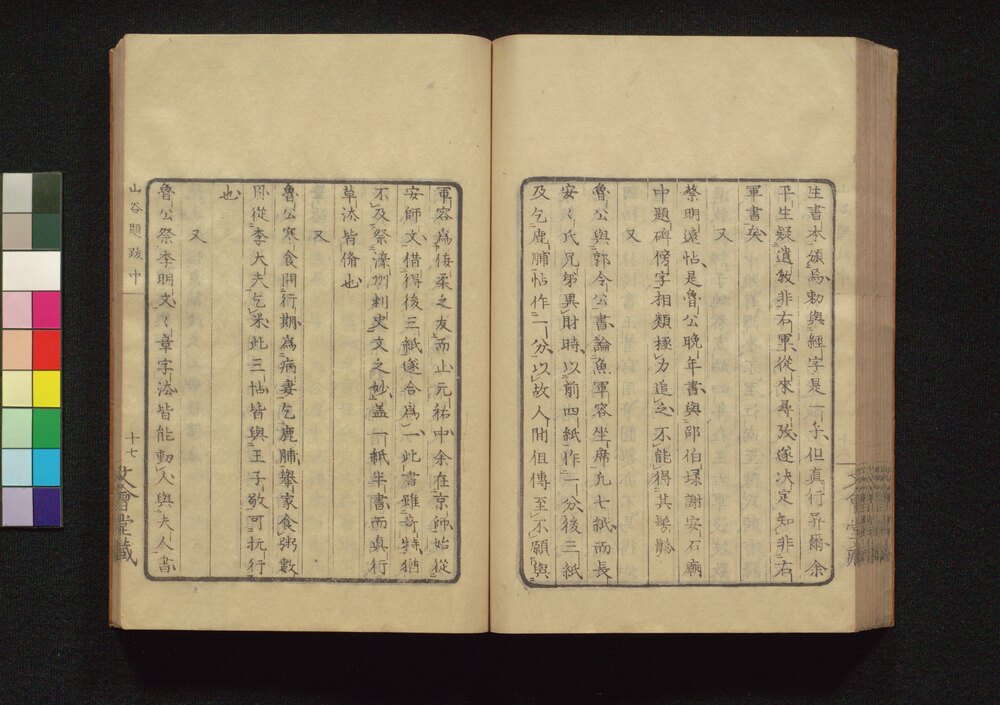 生書本頒焉勅與經字是一手但真行異爾余
平生疑遺敎非右軍從來尋攷遂決定知非右
軍書矣
又
蔡明遠帖是魯公晩年書與邵伯埭謝安石廟
中題碑傍字相類極力追之不能得其髣髴
又
魯公與郭令公書論魚軍容坐席凡七紙而長
安〻氏兄弟異財時以前四紙作一分後三紙
及乞鹿脯帖作一分以故人間但傳至不願與
軍容爲佞柔之友而止元祐中余在京師始從
安師文借得後三紙遂合爲一此書雖奇特猶
不及祭濠州刺史文之妙蓋一紙半書而眞行
草法皆備也
又
魯公寒食問行期爲病妻乞鹿脯擧家食粥數
月從李大夫乞米此三帖皆與王子敬可抗行
也
又
魯公祭李明文〻章字法皆能動人與夫人書
山谷題跋中
十七
文會堂藏